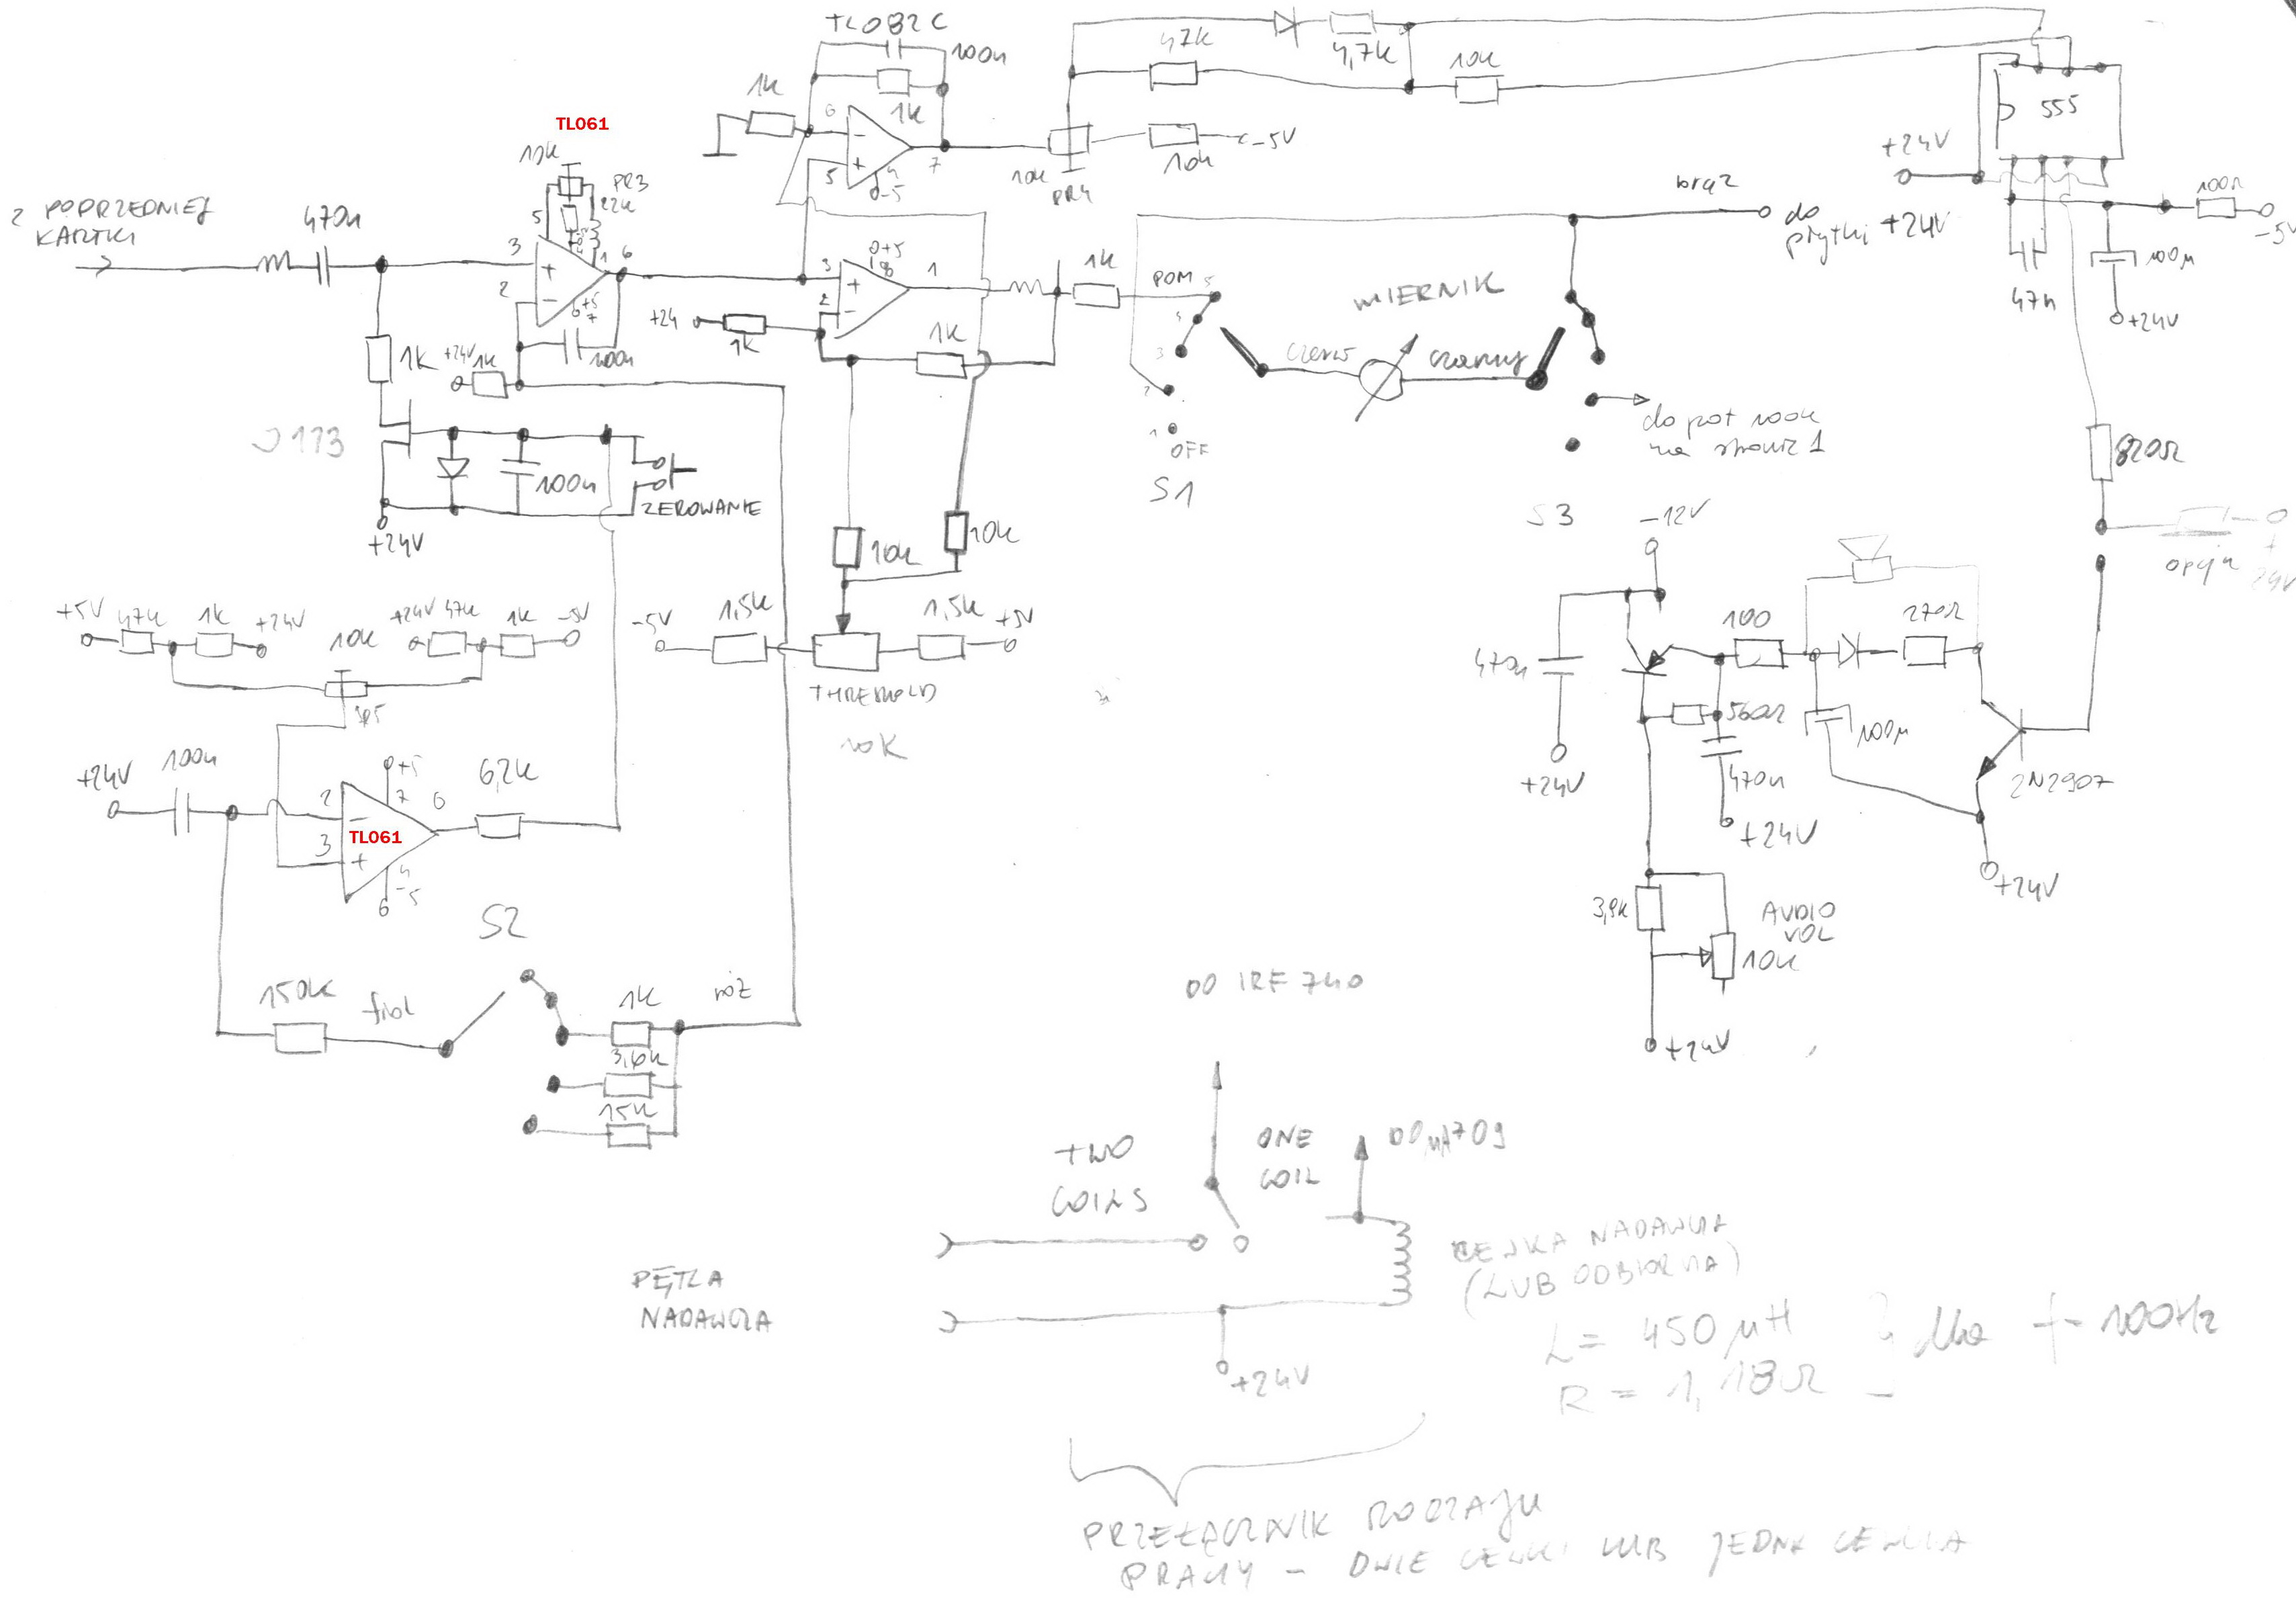 TL082C
100n
47k
4,7k
10k
1k
1k
6
5
7
4
-5
555
+24V
10k
PR4
10k
-5V
TL061
PR3
22k
5
Z POPRZEDNIEJ
KARTKI
470n
3
2
1
6
+5
7
100n
brąz
do
płytki +24V
100Ω
-5V
100µ
47n
+24V
+5
8
3
2
1
1k
+24
1k
1k
POM
5
4
3
2
1
OFF
S1
MIERNIK
czerw
czarny
do pot 100k
na stronie 1
S3
1k
+24V
1k
J173
100n
ZEROWANIE
+24V
10k
10k
820Ω
opcja
+
24V
-12V
+5V
47k
1k
+24V
10k
+24V
47k
1k
-5V
-5V
1,5k
1,5k
+5V
THRESHOLD
10K
470n
+24V
100
270Ω
560Ω
100µ
470n
+24V
2N2907
+24V
+24V
100n
2
3
+5
7
6
4
-5
TL061
6,2k
3,9k
AUDIO
VOL
10k
+24V
S2
150k
fiol
1k
róż
3,6k
15k
DO IRF 740
TWO
COILS
ONE
COIL
DO µA709
PĘTLA
NADAWCZA
+24V
CEWKA NADAWCZA
(LUB ODBIORCZA)
L = 450 µH
R = 1,18Ω
dla f = 100Hz
PRZEŁĄCZNIK RODZAJU
PRACY - DWIE CEWKI LUB JEDNA CEWKA